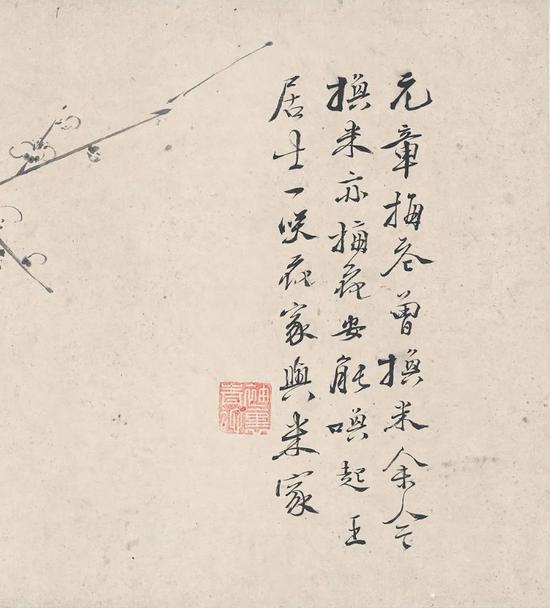 元章梅花曾換米余今
換米亦梅花安能喚起王
居士一咲花家與米家